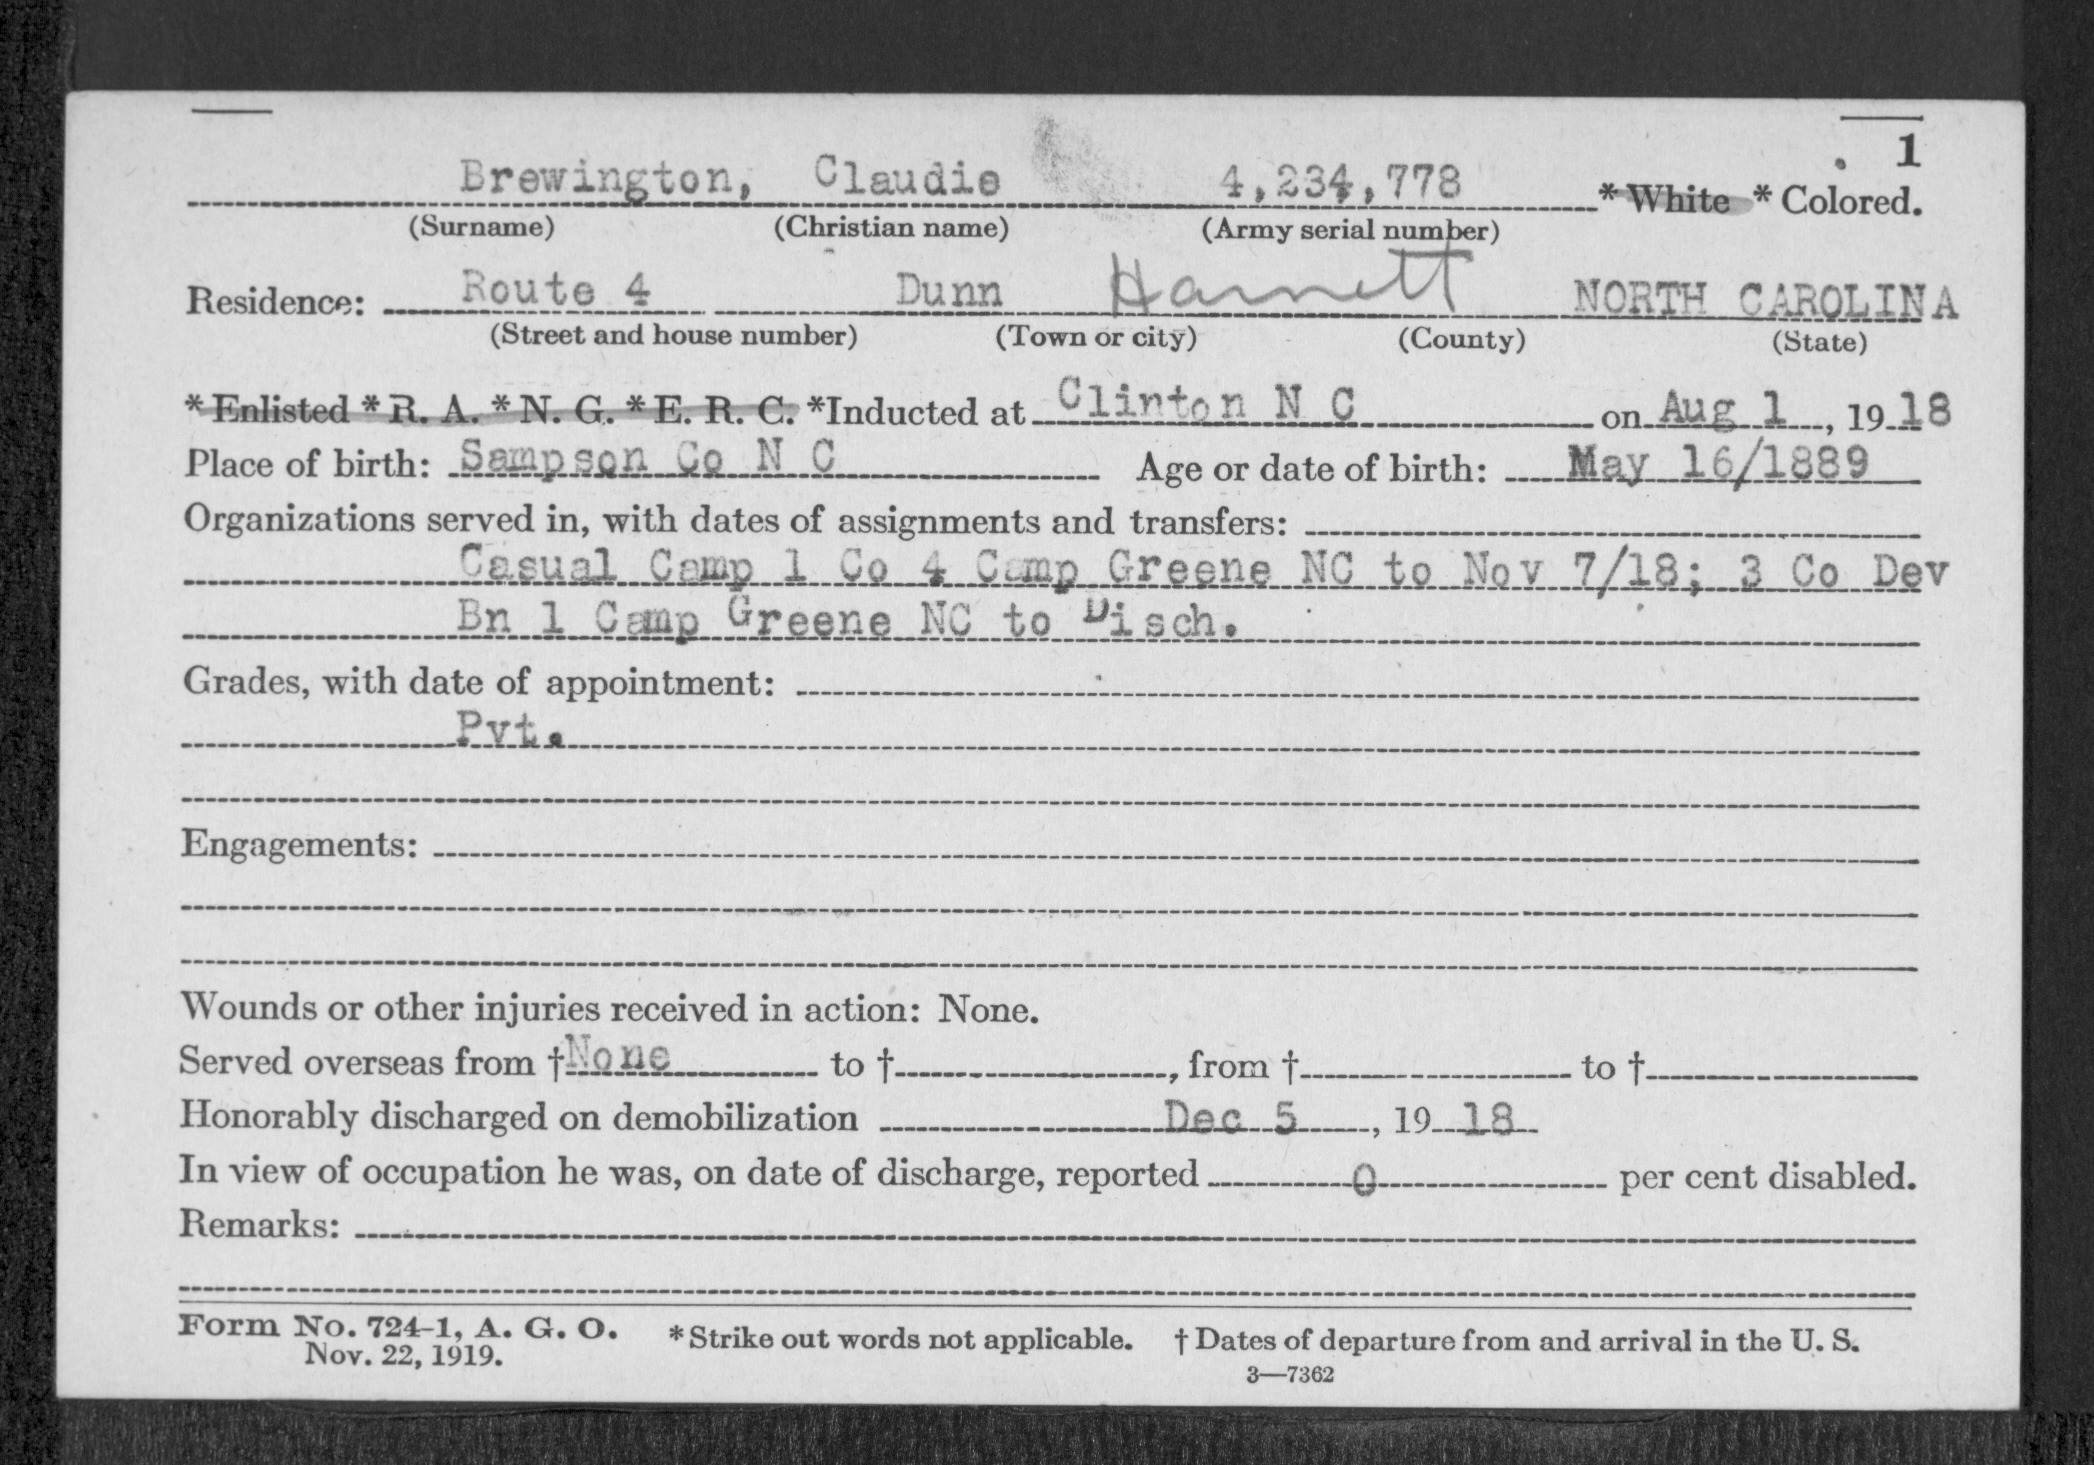 1
Brewington, Claudie 4,234,778 * White * Colored.
(Surname) (Christian name) (Army serial number)
Residence: Route 4 Dunn Harnett NORTH CAROLINA
(Street and house number) (Town or city) (County) (State)
* Enlisted * R. A. * N. G. * E. R. C. *Inducted at Clinton N C on Aug 1, 1918
Place of birth: Sampson Co N C Age or date of birth: May 16/1889
Organizations served in, with dates of assignments and transfers:
Casual Camp 1 Co 4 Camp Greene NC to Nov 7/18; 3 Co Dev
Bn 1 Camp Greene NC to Disch.
Grades, with date of appointment:
Pvt.
Engagements:
Wounds or other injuries received in action: None.
Served overseas from †None to †, from † to †
Honorably discharged on demobilization Dec 5, 1918
In view of occupation he was, on date of discharge, reported 0 per cent disabled.
Remarks:
Form No. 724-1, A. G. O. * Strike out words not applicable. † Dates of departure from and arrival in the U. S.
Nov. 22, 1919.
3—7362